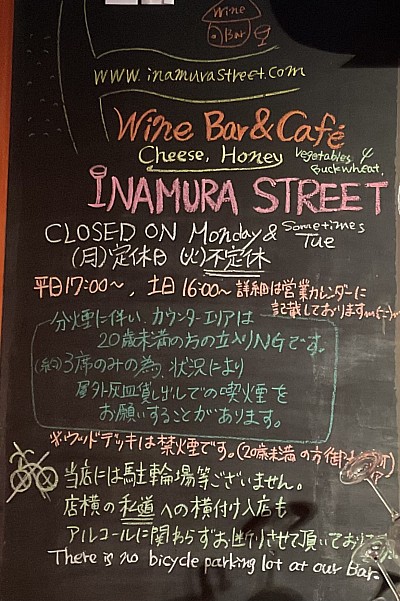 Wine
Bar
www.inamurastreet.com
Wine Bar & Café
Cheese, Honey
Vegetables &
Buckwheat.
INAMURA STREET
CLOSED ON Monday & Sometimes Tue
(月)定休日 (火)不定休
平日17:00〜, 土日16:00〜 詳細は営業カレンダーに
記載しております
分煙に伴い、カウンターエリアは
20歳未満の方の立入りNGです。
(約)3席のみの為、状況により
屋外灰皿貸し出しでの喫煙を
お願いすることがあります。
※ウッドデッキは禁煙です。(20歳未満の方御
当店には駐輪場等ございません。
店横の私道への横付け入店も
アルコールに関わらずお断りさせて頂いており
There is no bicycle parking lot at our Bar.